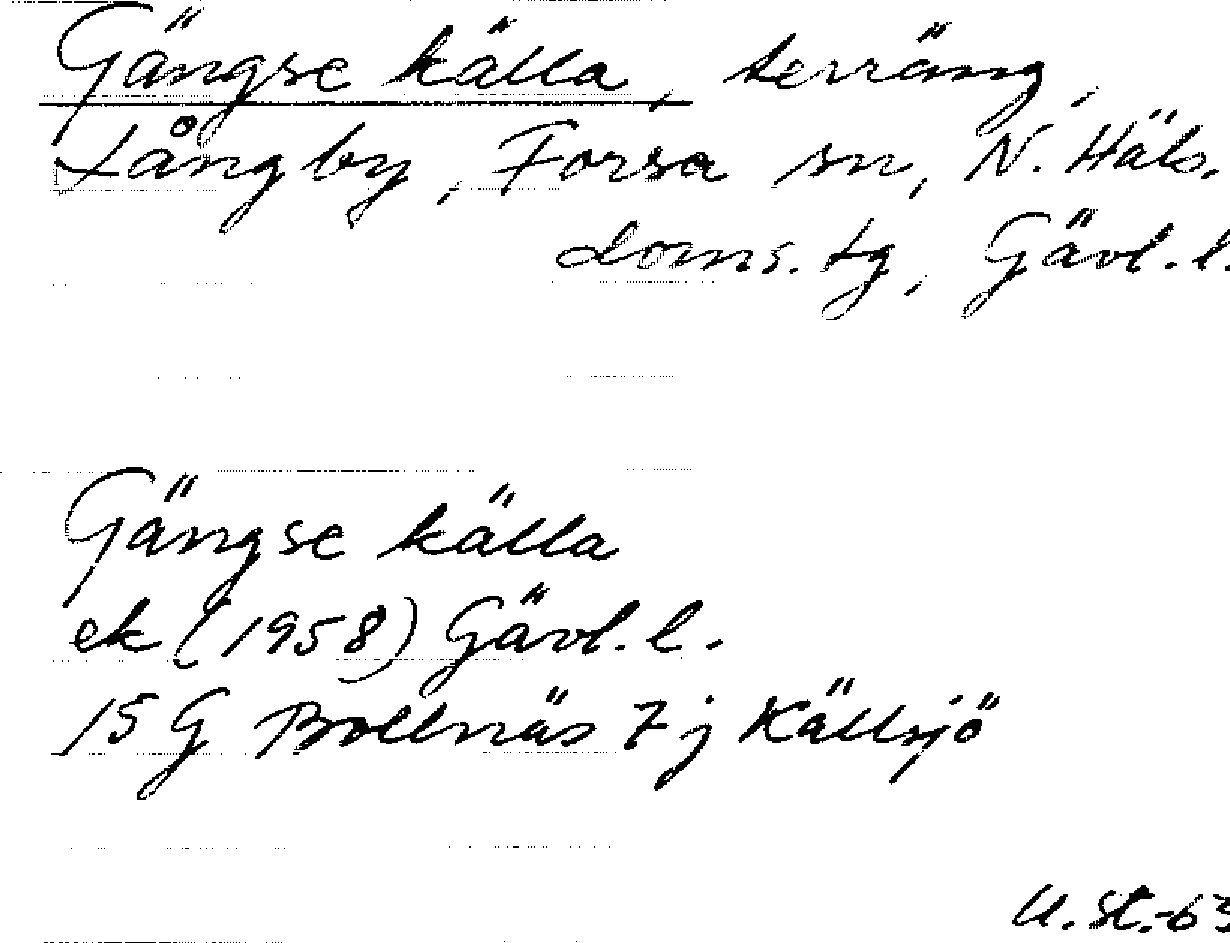 Gängse källa, terräng,
Långby, Forsa sn, N. Häls.
doms. tg, Gävl. l.
Gängse källa
ek (1958) Gävl. l.
15 G Bollnäs 7 j Källsjö
U. St.-63